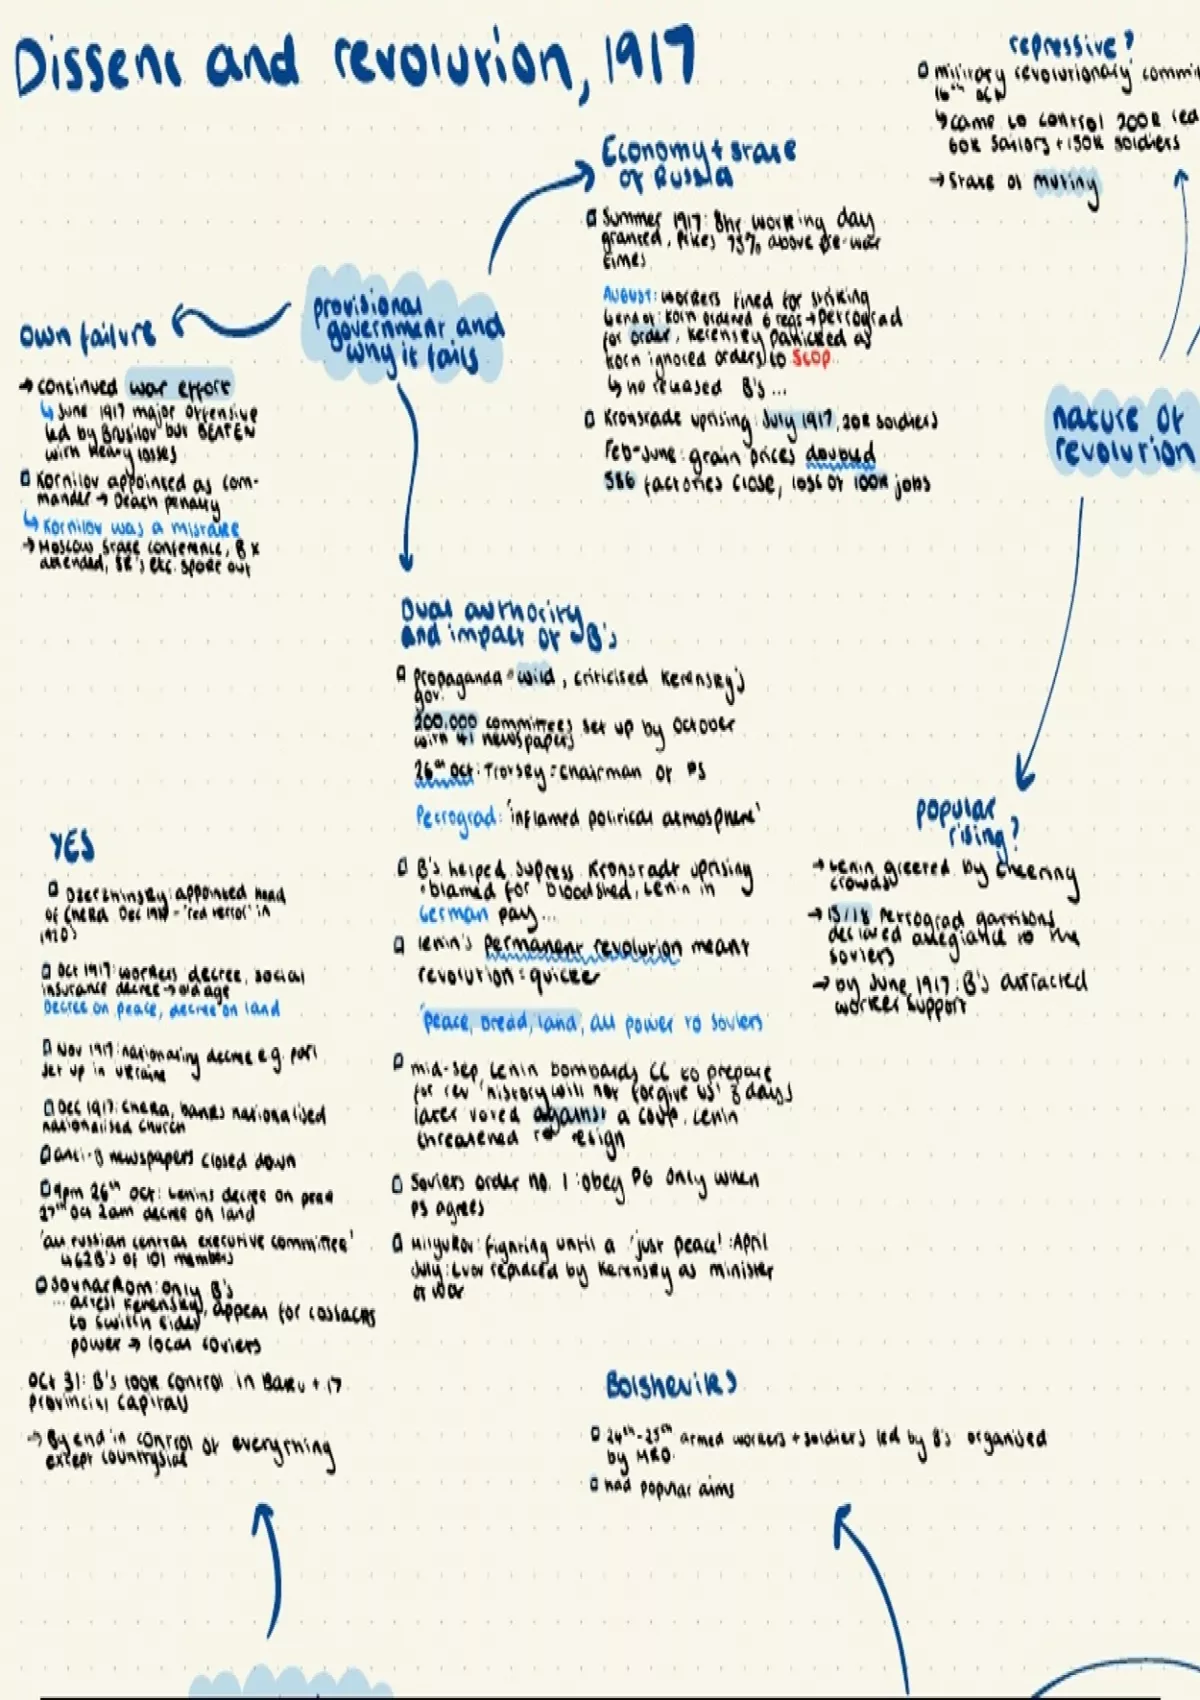 Dissent and revolution, 1917
repressive?
military revolutionary
16th Oct
↳ came to control 200k
60k sailors + 150k soldiers
→ State of mutiny
Economy + state
of Russia
Summer 1917: 8hr working day
granted, 75% above pre-war
times
AUGUST: workers fined for striking
korn ordered 6 regs → petrograd
for order, Kerensky panicked as
korn ignored orders to stop
↳ he released B's...
Kronstadt uprising: July 1917, 20k soldiers
Feb-June: grain prices doubled
586 factories close, loss of 100k jobs
provisional
government and
why it fails
own failure
→ continued war effort
↳ June 1917 major offensive
led by Brusilov but BEATEN
with heavy losses
Kornilov appointed as com-
mander → Death penalty
↳ Kornilov was a mistake
→ Moscow State conference, B x
attended, SR's etc. spoke out
nature of
revolution
Dual authority
and impact of B's
propaganda = wild, criticised Kerensky's
gov.
200,000 committees set up by October
with 41 newspapers
26th Oct: Trotsky = chairman of PS
Petrograd: 'inflamed political atmosphere'
B's helped supress Kronstadt uprising
• blamed for bloodshed, Lenin in
German pay...
Lenin's permanent revolution meant
revolution = quicker
'peace, bread, land, all power to soviets
mid-sep Lenin bombards CC to prepare
for rev 'history will not forgive us' days
later voted against a coup. Lenin
threatened to resign
Soviets order no. 1: obey PG only when
PS agrees
Milyukov: fighting until a 'just peace': April
July: Lvov replaced by Kerensky as minister
of war
popular
rising?
→ Lenin greeted by cheering
crowds
→ 15/18 Petrograd garrisons
declared allegiance to the
soviets
→ by June 1917: B's attracted
worker support
YES
Dzerzhinsky: appointed head
of Cheka Dec - 'red terror' in
1920s
Oct 1917: workers decree, social
insurance decree → old age
Decree on peace, decree on land
Nov 1917: nationality decree e.g.
set up in ukraine
Dec 1917: Cheka, banks nationalised
nationalised church
anti-B newspapers closed down
9pm 26th Oct: Lenins decree on
27th Oct 2am decree on land
'all russian central executive committee'
↳ 62B's of 101 members
Sovnarkom: only B's
... arrest Kerensky, appeal for cossacks
to switch sides
power → local soviets
Oct 31: B's took control in Baku + 17
provincial capitals
→ By end in control of everything
except countryside
Bolsheviks
24th-25th armed workers + soldiers led by B's organised
by MRC.
had popular aims